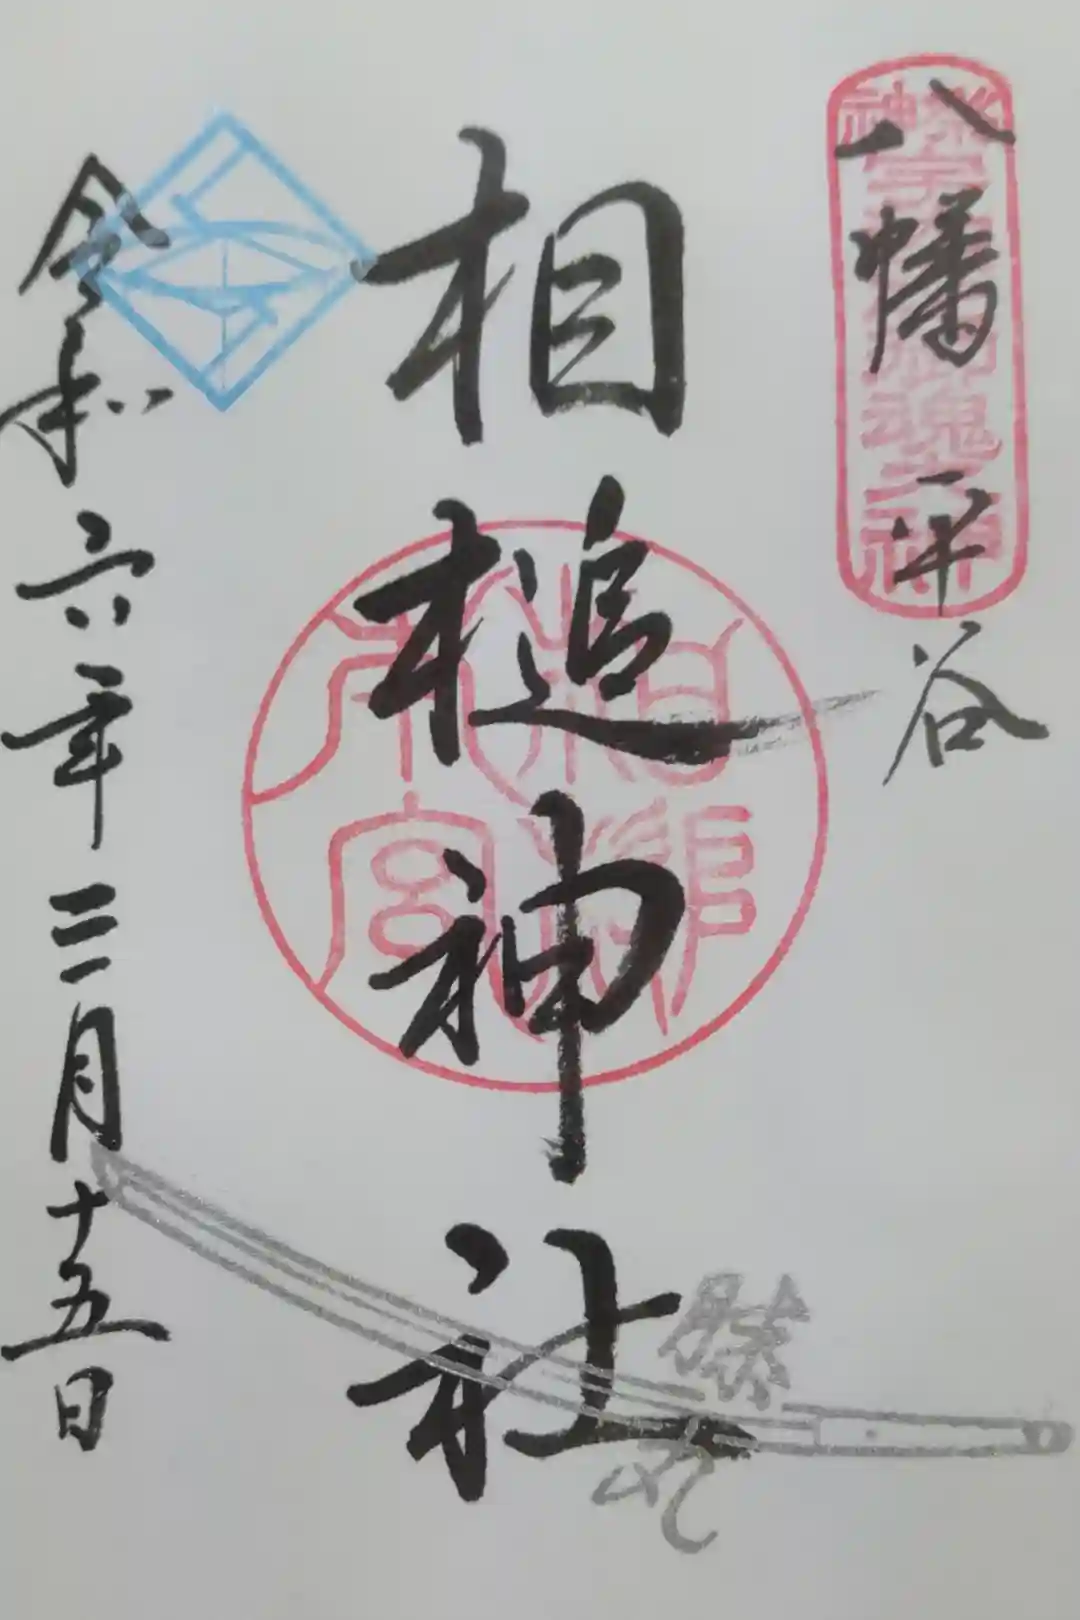 八幡平谷
相槌神社
令和六年三月十五日
膝丸